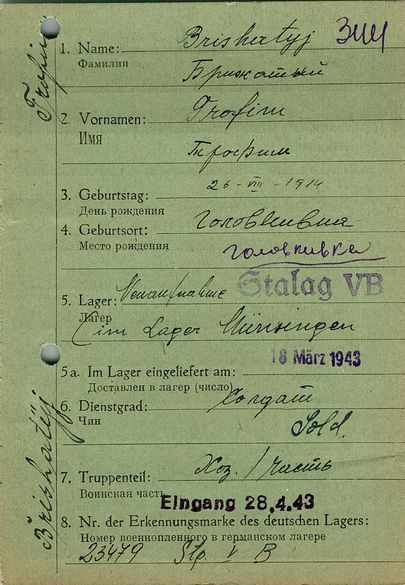 Trofim
Brishatyj
1. Name: Brishatyj
Фамилия Брижатый
2. Vornamen: Trofim
Имя
Трофим
3. Geburtstag: 26-VIII-1914
День рождения
4. Geburtsort: Головкивка
Место рождения Головкивка
Stalag VB
5. Lager:
Лагер
(im Lager Münsingen
18 März 1943
5a. Im Lager eingeliefert am:
Доставлен в лагер (число)
6. Dienstgrad: Солдат
Чин
Sold.
7. Truppenteil: Хоз./часть
Воинская часть
Eingang 28.4.43
8. Nr. der Erkennungsmarke des deutschen Lagers:
Номер военнопленного в германском лагере
23479 Stlg. V B